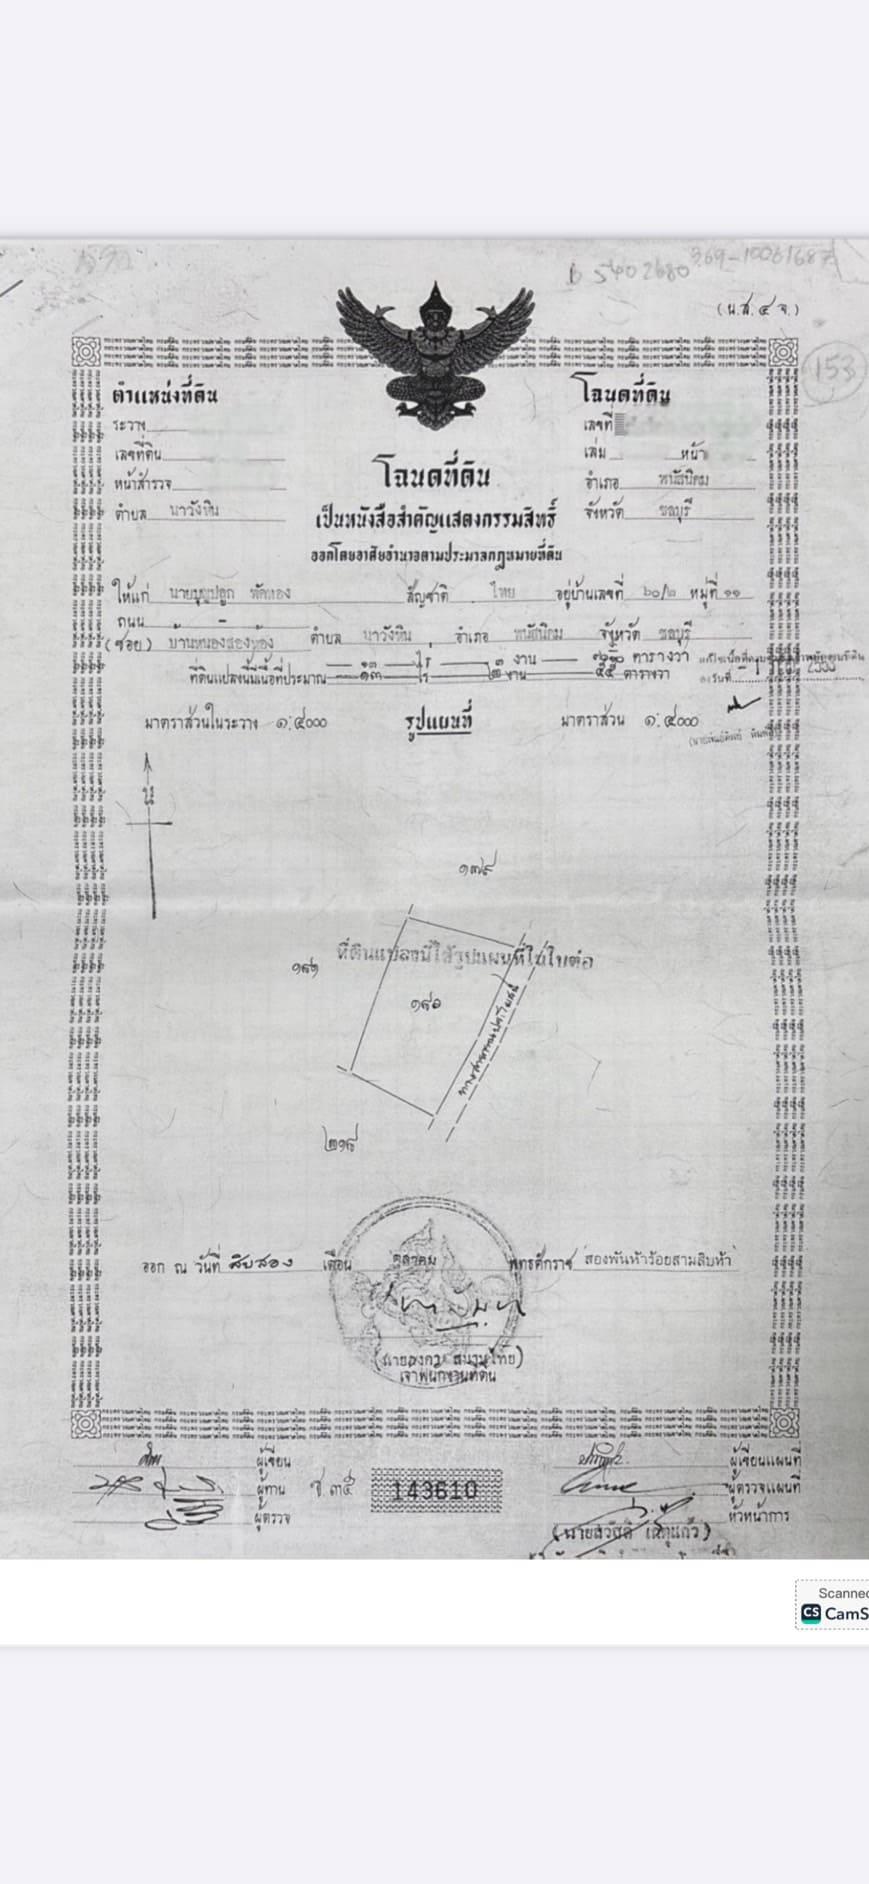 B 5402680
369-10061687
(น.ส. ๔ จ.)
153
ตำแหน่งที่ดิน
ระวาง
เลขที่ดิน
หน้าสำรวจ
ตำบล นาวังหิน
โฉนดที่ดิน
เลขที่
เล่ม หน้า
อำเภอ พนัสนิคม
จังหวัด ชลบุรี
โฉนดที่ดิน
เป็นหนังสือสำคัญแสดงกรรมสิทธิ์
ออกโดยอาศัยอำนาจตามประมวลกฎหมายที่ดิน
ให้แก่ นายบุญปลูก พัดทอง สัญชาติ ไทย อยู่บ้านเลขที่ ๖๐/๒ หมู่ที่ ๑๑
ถนน -
(ซอย) บ้านหนองสองห้อง ตำบล นาวังหิน อำเภอ พนัสนิคม จังหวัด ชลบุรี
๑๓ ไร่ ๓ งาน ตารางวา
ที่ดินแปลงนี้มีเนื้อที่ประมาณ ๑๓ ไร่ ๒ งาน ๕๕ ตารางวา
มาตราส่วนในระวาง ๑:๔๐๐๐ รูปแผนที่ มาตราส่วน ๑:๔๐๐๐
๑๗๙
ที่ดินแปลงนี้ใช้รูปแผนที่ในใบต่อ
๑๘๑
๑๘๐
ทางสาธารณประโยชน์
๒๑๘
ออก ณ วันที่ สิบสอง เดือน ตุลาคม พุทธศักราช สองพันห้าร้อยสามสิบห้า
เจ้าพนักงานที่ดิน
ผู้เขียน
ผู้ทาน
ผู้ตรวจ
ช.๓๕
143610
ผู้เขียนแผนที่
ผู้ตรวจแผนที่
หัวหน้าการ
(นายสวัสดิ์ เนตุแก้ว)
Scanned
CS CamS